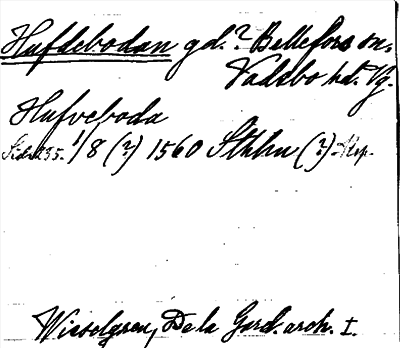 Hufdebodan gd.? Bellefors sn.
Vadsbo hd. Vg.
Hufveboda
1/8 (?) 1560 Sthlm (?)
Wieselgren, De la Gard. arch. I.